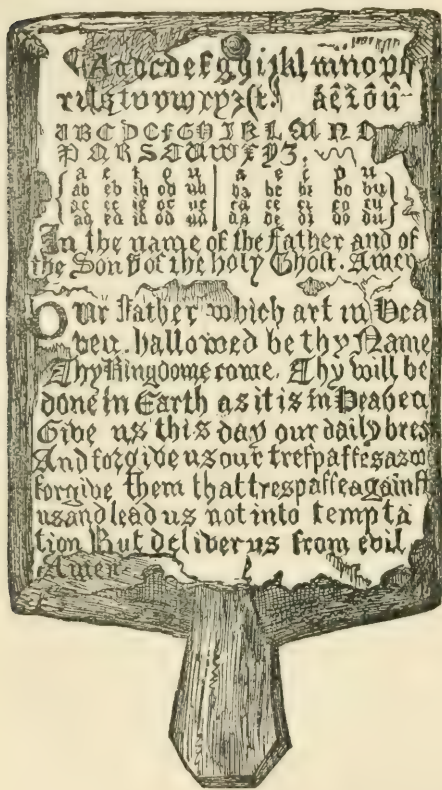 Aabcdefghijklmnopq
rſstuvwxyz&c. áêîôû
ABCDEFGHIKLMNO
PQRSTUWXYZ.
a e i o u a e i o u
ab eb ib ob ub ba be bi bo bu
ac ec ic oc uc ca ce ci co cu
ad ed id od ud da de di do du
In the name of the Father and of
the Son & of the holy Ghoſt. Amen
Our Father which art in Hea
ven. hallowed be thy Name
Thy Kingdome come. Thy will be
done in Earth as it is in Heaven
Give us this day our daily bred
And forgive us our treſpaſſes as we
forgive them that treſpaſſe againſt
us and lead us not into tempta
tion But deliver us from evil
Amen